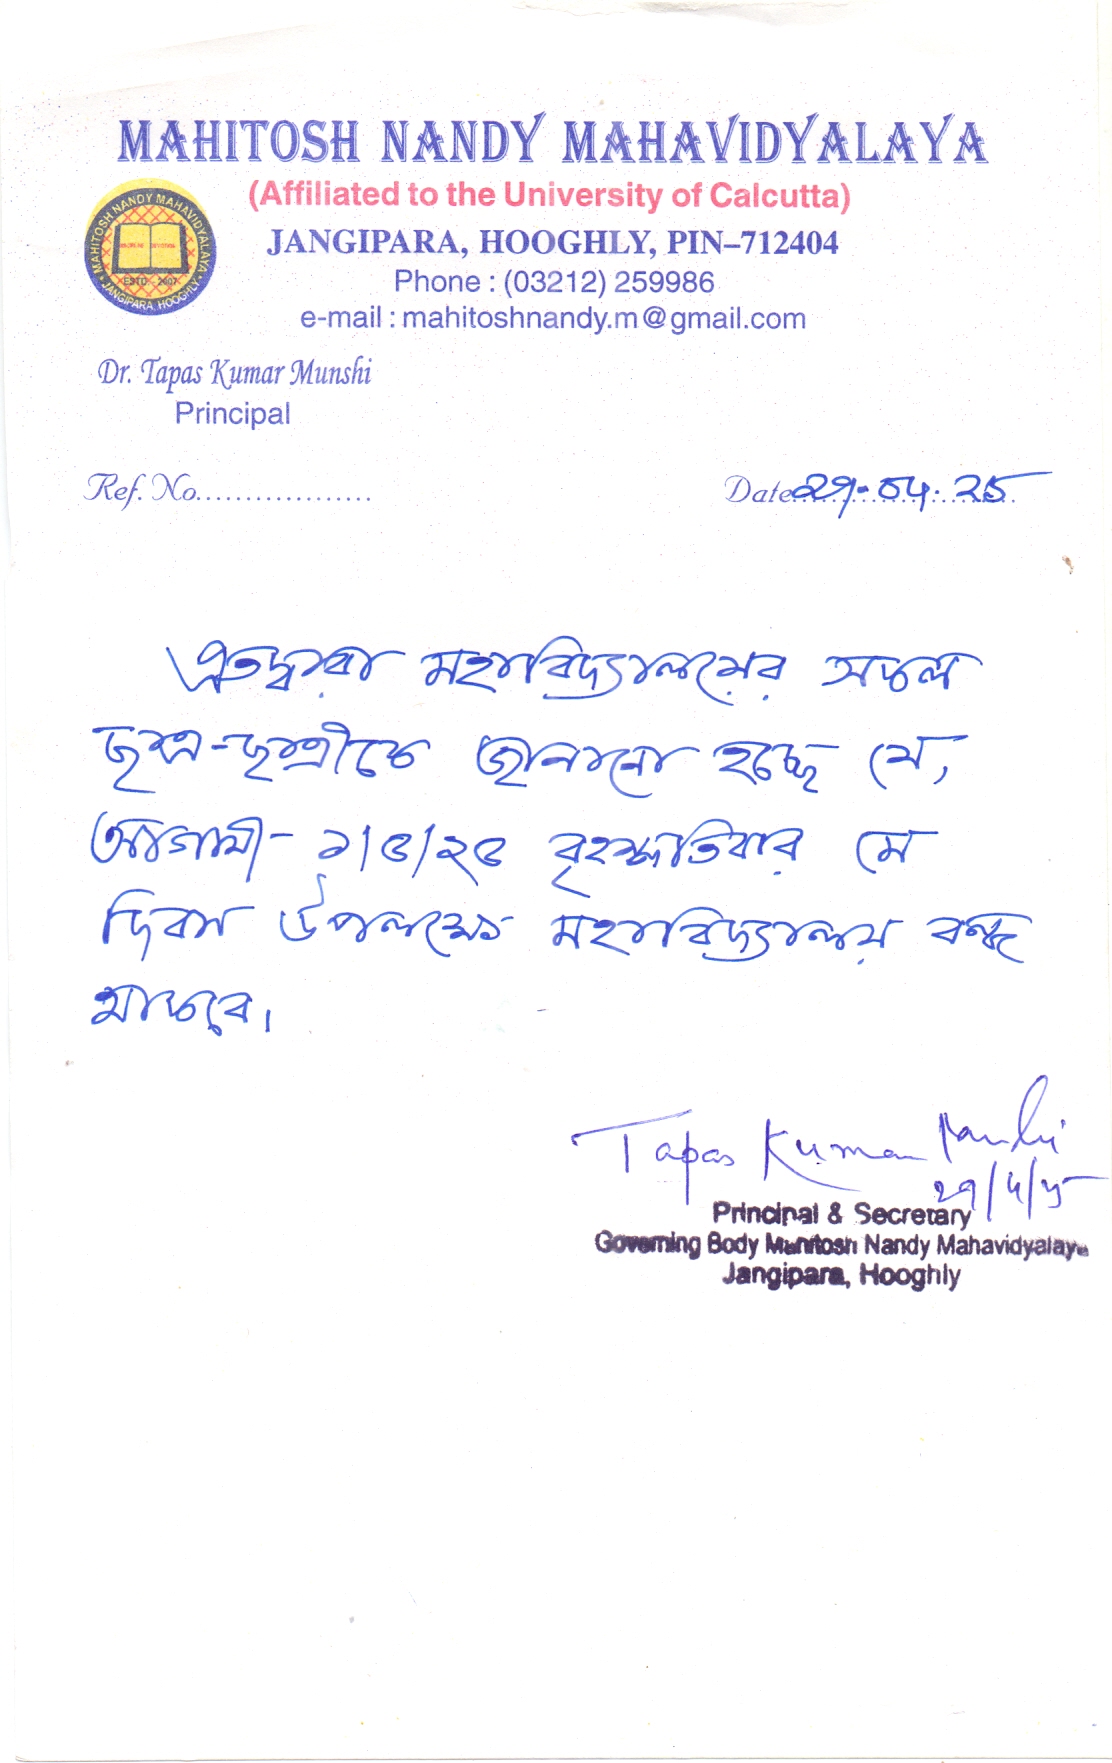 MAHITOSH NANDY MAHAVIDYALAYA
(Affiliated to the University of Calcutta)
JANGIPARA, HOOGHLY, PIN–712404
Phone : (03212) 259986
e-mail : mahitoshnandy.m@gmail.com
MAHITOSH NANDY MAHAVIDYALAYA
ESTD. - 2007
JANGIPARA, HOOGHLY
Dr. Tapas Kumar Munshi
Principal
Ref. No..................
Date 29.04.25
এতদ্বারা মহাবিদ্যালয়ের সকল
ছাত্র-ছাত্রীকে জানানো হচ্ছে যে,
আগামী- ১/৫/২৫ বৃহস্পতিবার মে
দিবস উপলক্ষ্যে মহাবিদ্যালয় বন্ধ
থাকবে।
Tapas Kumar Munshi
29/4/25
Principal & Secretary
Governing Body Mahitosh Nandy Mahavidyalaya
Jangipara, Hooghly